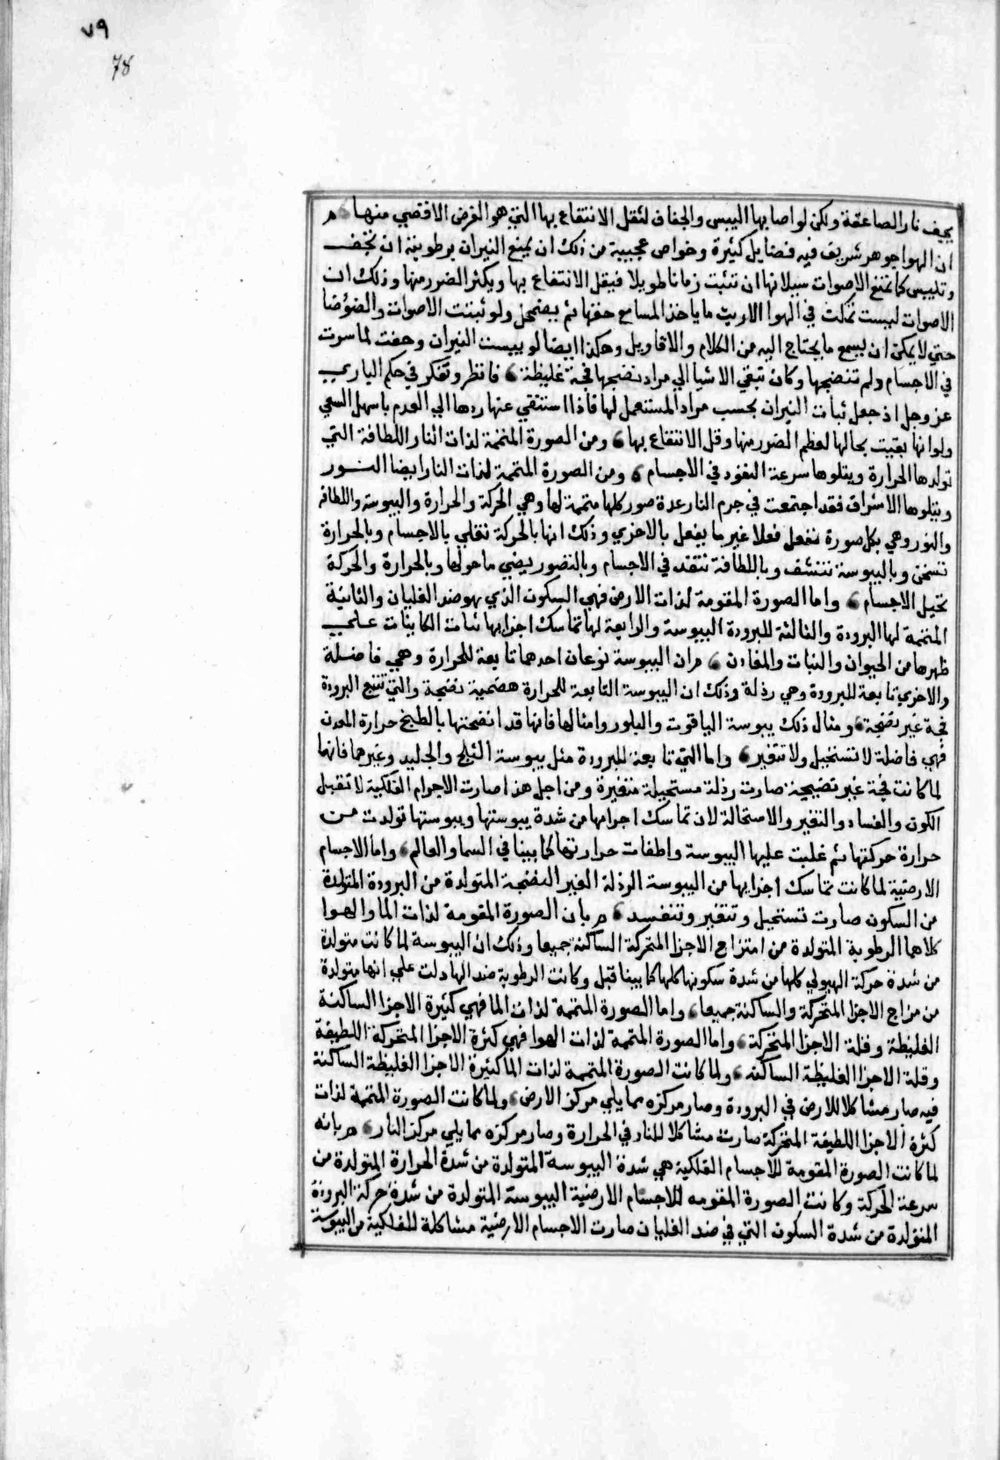 ٧٩
78
يجف نار الصاعقة ولكن لو اصابها اليبس والجفاف لثقل الانتفاع بها التي هو الغرض الاقصي منها م
ان الهوا جوهر شريف فيه فضايل كثيرة وخواص عجيبة من ذلك ان يمنع النيران برطوبته ان تجفف
وتيبس كما تمنع الاصوات سيلانها ان تثبت زمانا طويلا فيقل الانتفاع بها ويكثر الضرر منها وذلك ان
الاصوات ليست تمكث في الهوا الا ريث ما ياخذ المسامع حقها ثم يضمحل ولو ثبتت الاصوات والضوضا
حتي لا يمكن ان يسمع ما يحتاج اليه من الكلام والاقاويل وهكذا ايضا لو يبست النيران وجفت لما سرت
في الاجسام ولم تنضجها وكان تبقي الاشيا الي مراد نضجها فجة غليظة فانظر وتفكر في حكم الباري
عز وجل اذ جعل ثبات النيران بحسب مراد المستعمل لها فاذا استنقي عنها ردها الي العدم باسهل السعي
ولو انها بقيت بحالها لعظم الضرر منها وقل الانتفاع بها ومن الصورة المتممة لذات النار اللطافة التي
تولدها الحرارة ويتلوها سرعة النفوذ في الاجسام ومن الصورة المتممة لذات النار ايضا النور
ويتلوها الاشراق فقد اجتمعت في جرم النار عدة صور كلها متممة لها وهي الحركة والحرارة واليبوسة واللطافة
والنور وهي بكل صورة تفعل فعلا غير ما يفعل بالاخري وذلك انها بالحركة تغلي بالاجسام وبالحرارة
تسخن وباليبوسة تنشف وباللطافة تنفذ في الاجسام وبالنصور يضي ما حولها وبالحرارة والحركة
تحيل الاجسام واما الصورة المقومة لذات الارض فهي السكون الذي هو ضد الغليان والثانية
المتممة لها البرودة والثالثة للبرودة اليبوسة والرابعة لها تماسك اجزايها ثبات الكاينات علي
ظهرها من الحيوان والنبات والمعادن م ان اليبوسة نوعان احدهما تابعة للحرارة وهي فاضلة
والاخري تابعة للبرودة وهي رذلة وذلك ان اليبوسة التابعة للحرارة هضمية نضجة والتي تتبع البرودة
فجة غير نضجة ومثال ذلك يبوسة الياقوت والبلور وامثالها فانها قد انضجتها بالطبخ حرارة المعدن
فهي فاضلة لا تستحيل ولا تتغير واما التي تابعة للبرودة مثل يبوسة الثلج والجليد وغيرهما فانها
لما كانت فجة غير نضيجة صارت رذلة مستحيلة متغيرة ومن اجل هذا صارت الاجرام الفلكية لا تقبل
الكون والفساد والتغير والاستحالة لان تماسك اجرامها من شدة يبوستها ويبوستها تولدت من
حرارة حركتها ثم غلبت عليها اليبوسة واطفات حرارتها كما بينا في السما والعالم واما الاجسام
الارضية لما كانت تماسك اجزايها من اليبوسة الرذلة الغير المنضجة المتولدة من البرودة المتولدة
من السكون صارت تستحيل وتتغير وتنفسد م بان الصورة المقومة لذات الما والهوا
كلاهما الرطوبة المتولدة من امتزاج الاجزا المتحركة الساكنة جميعا وذلك ان اليبوسة لما كانت متولدة
من شدة حركة الهيولي كلها من شدة سكونها كلها كما بينا قبل وكانت الرطوبة ضد الها دلت علي انها متولدة
من مزاج الاجزا المتحركة والساكنة جميعا واما الصورة المتممة لذات الما فهي كثيرة الاجزا الساكنة
الغليظة وقلة الاجزا المتحركة واما الصورة المتممة لذات الهوا فهي كثرة الاجزا المتحركة اللطيفة
وقلة الاجزا الغليظة الساكنه ولما كانت الصورة المتممة لذات الما كثيرة الاجزا الغليظة الساكنة
فيه صار مشاكلا للارض في البرودة وصار مركزه مما يلي مركز الارض ولما كانت الصورة المتممة لذات
كثرة الاجزا اللطيفة المتحركة صارت مشاكلا للنار في الحرارة وصار مركزه مما يلي مركز النار م بانه
لما كانت الصورة المقومة للاجسام الفلكية هي شدة اليبوسة المتولدة من شدة الحرارة المتولدة من
سرعة الحركة وكانت الصورة المقومه للاجسام الارضية اليبوسة المتولدة من شدة حركة البرودة
المتولدة من شدة السكون التي في ضد الغليان صارت الاجسام الارضية مشاكلة للفلكية من اليبوسة